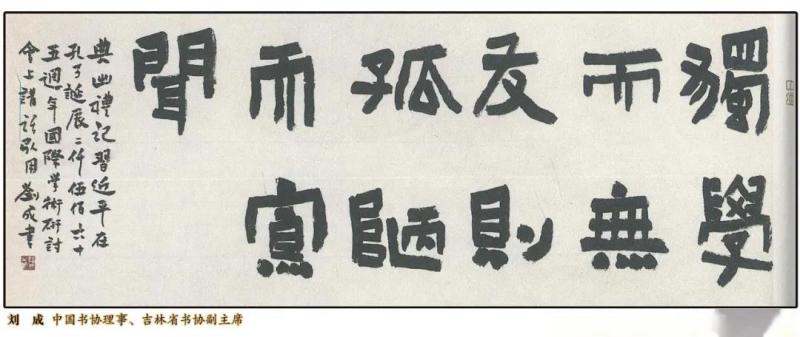 獨學
而無
友則
孤陋
而寡
聞
典出禮記習近平在
孔子誕辰二仟伍佰六十
五週年國際學術研討
會上講話引用劉成書
刘 成 中国书协理事、吉林省书协副主席